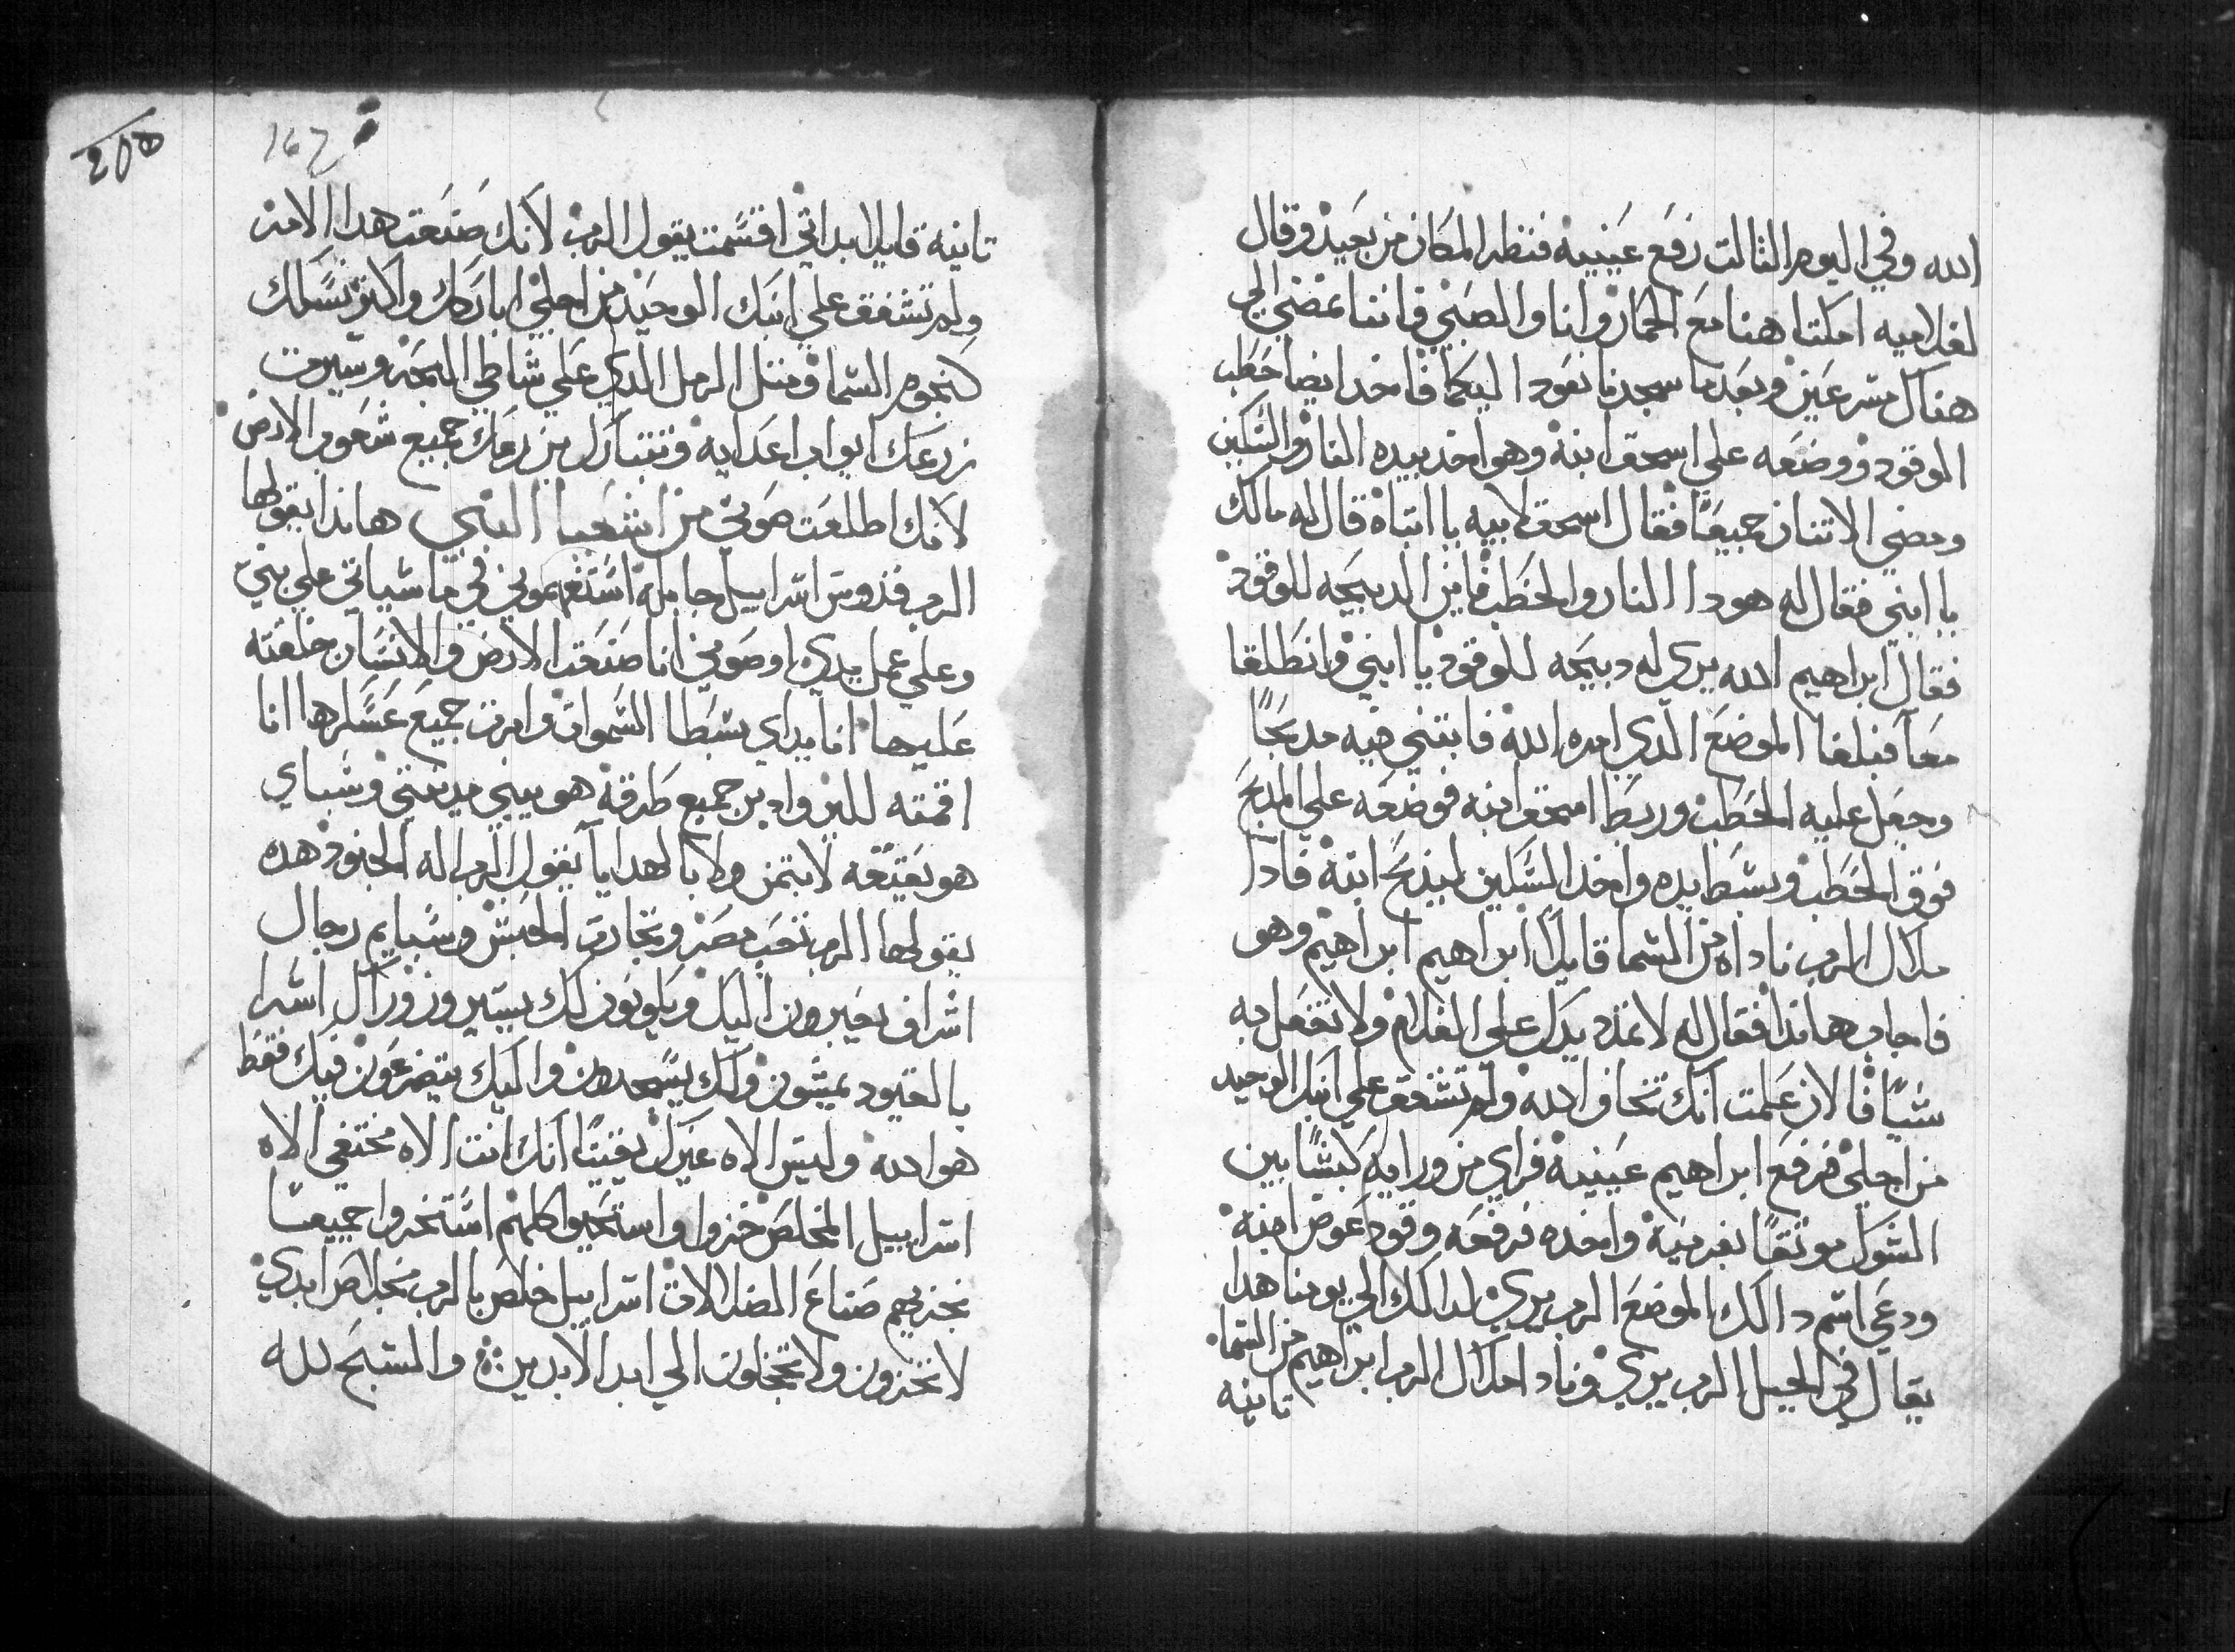 الله وفي اليوم الثالت رفع عينيه فنظر المكان من بعيد وقال
لغلاميه امكتا هنا مع الحمار وانا والصبي فاننا نمضي الي
هناك مسرعين وبعدما سجدنا نعود اليكما فاخد ايضا حطب
الوقود ووضعه علي اسحق ابنه وهو اخد بيده النار والسكين
ومضي الاتنان جميعًا فقال اسحق لابيه يا ابتاه قال له مالك
يا ابني فقال له هودا النار والحطب فاين الدبيحه للوقود
فقال ابراهيم الله يري له دبيحه للوقود يا ابني وانطلقا
معاً فبلغا الموضع الدي امره الله فابتني فيه مدبحًا
وجعل عليه الحطب وربط اسحق ابنه فوضعه علي المدبح
فوق الحطب وبسط يده واخد السكين ليدبح ابنه فادا
ملاك الرب ناداه من السما قايلاً ابراهيم ابراهيم وهو
فاجاب هانذا فقال له لا تمدد يدك علي الغلام ولا تفعل به
شياً فالان علمت انك تخاف الله ولم تشفق علي ابنك الوحيد
من اجلي فرفع ابراهيم عينيه فراي من ورايه كبشًا بين
الشوك موتقًا بقرنيه واخده فرفعه وقود عوض ابنه
ودعي اسم دالك الموضع الرب يري لدالك الي يومنا هدا
يقال في الجبل الرب يري ونادا ملاك الرب ابراهيم من السما
تانيه
205
167
تانيه قايلا بداتي اقسمت يقول الرب لانك صنعت هدا الامر
ولم تشفق علي ابنك الوحيد من اجلي اباركك واكتر نسلك
كنجوم السما ومتل الرمل الدي علي شاطي البحر وسيرت
زرعك ابواب اعدايه وتتبارك بزرعك جميع شعوب الارض
لانك اطلعت صوتي من اشعيا النبي هاندا يقولها
الرب قدوس اسراييل جابله استفهموني في ما سياتي علي بني
وعلي عمل يدي اوصوني انا صنعت الارض والانسان خلقته
عليها انا بيداي بسطا السموات وامرت جميع عسكرها انا
اقمته للبر وادبر جميع طرقه هو يبني مدينتي وسباي
هو يعتقه لا بتمن ولا بالهدايا يقول الرب اله الجنود هده
يقولها الرب تعب مصر وتجارت الحبش وسبايم رجال
اشراف يعبرون اليك ويكونون لك يسيرون وراك اسرا
بالقيود يمشون ولك يسجدون واليك يتضرعون فيك فقط
هو الله وليس الاه غيرك يقينًا انك انت الاه مختفي الاه
اسراييل المخلص خزوا واستحيوا كلهم استخروا جميعًا
بخزيهم صناع الضلالات اسراييل خلص بالرب بخلاص ابدي
لا تخزون ولا تخجلون الي ابد الابدين ܀ والسبح لله